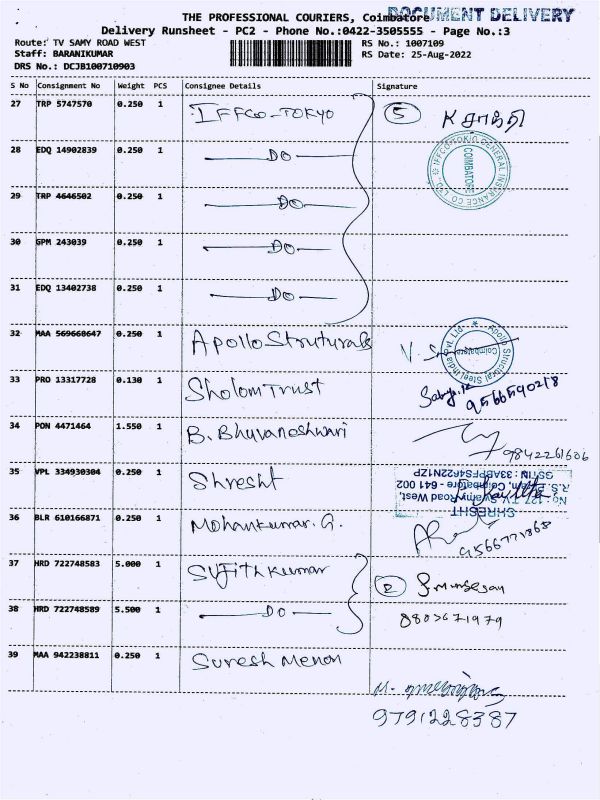 THE PROFESSIONAL COURIERS, Coimbatore DOCUMENT DELIVERY
Delivery Runsheet - PC2 - Phone No.:0422-3505555 - Page No.:3
Route: TV SAMY ROAD WEST RS No.: 1007109
Staff: BARANIKUMAR RS Date: 25-Aug-2022
DRS No.: DCJB100710903
S No Consignment No Weight PCS Consignee Details Signature
27 TRP 5747570 0.250 1 IFFCO-TOKYO 5 K சாந்தி
28 EDQ 14902839 0.250 1 DO
IFFCO-TOKIO GENERAL INSURANCE CO. LTD. COIMBATORE
29 TRP 4646502 0.250 1 DO
30 GPM 243039 0.250 1 DO
31 EDQ 13402738 0.250 1 DO
32 MAA 569668647 0.250 1 Apollo Struturals V. S
Apollo Structural Steel India Pvt. Ltd. Coimbatore
33 PRO 13317728 0.130 1 Sholom Trust
9566590218
34 PON 4471464 1.550 1 B. Bhuvaneshwari
9842261606
35 VPL 334930304 0.250 1 Shresht
SHRESHT
No: 127, T.V. Swamy Road West,
R.S. Puram, Coimbatore - 641 002
GSTIN : 33ABPFS4622N1ZP
36 BLR 610166871 0.250 1 Mohankumar. G.
9566771868
37 HRD 722748583 5.000 1 Sujithkumar 2
38 HRD 722748589 5.500 1 DO 8803671979
39 MAA 942238811 0.250 1 Suresh Menon
9791228387